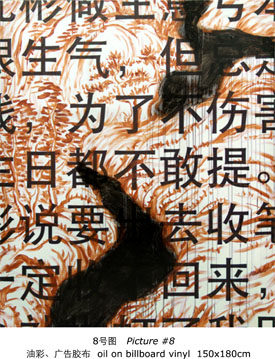 做生意亏
很生气，但
，为了不伤害
生日都不敢提。
说要 去收
一定 回来，
8号图 Picture #8
油彩、广告胶布 oil on billboard vinyl 150x180cm